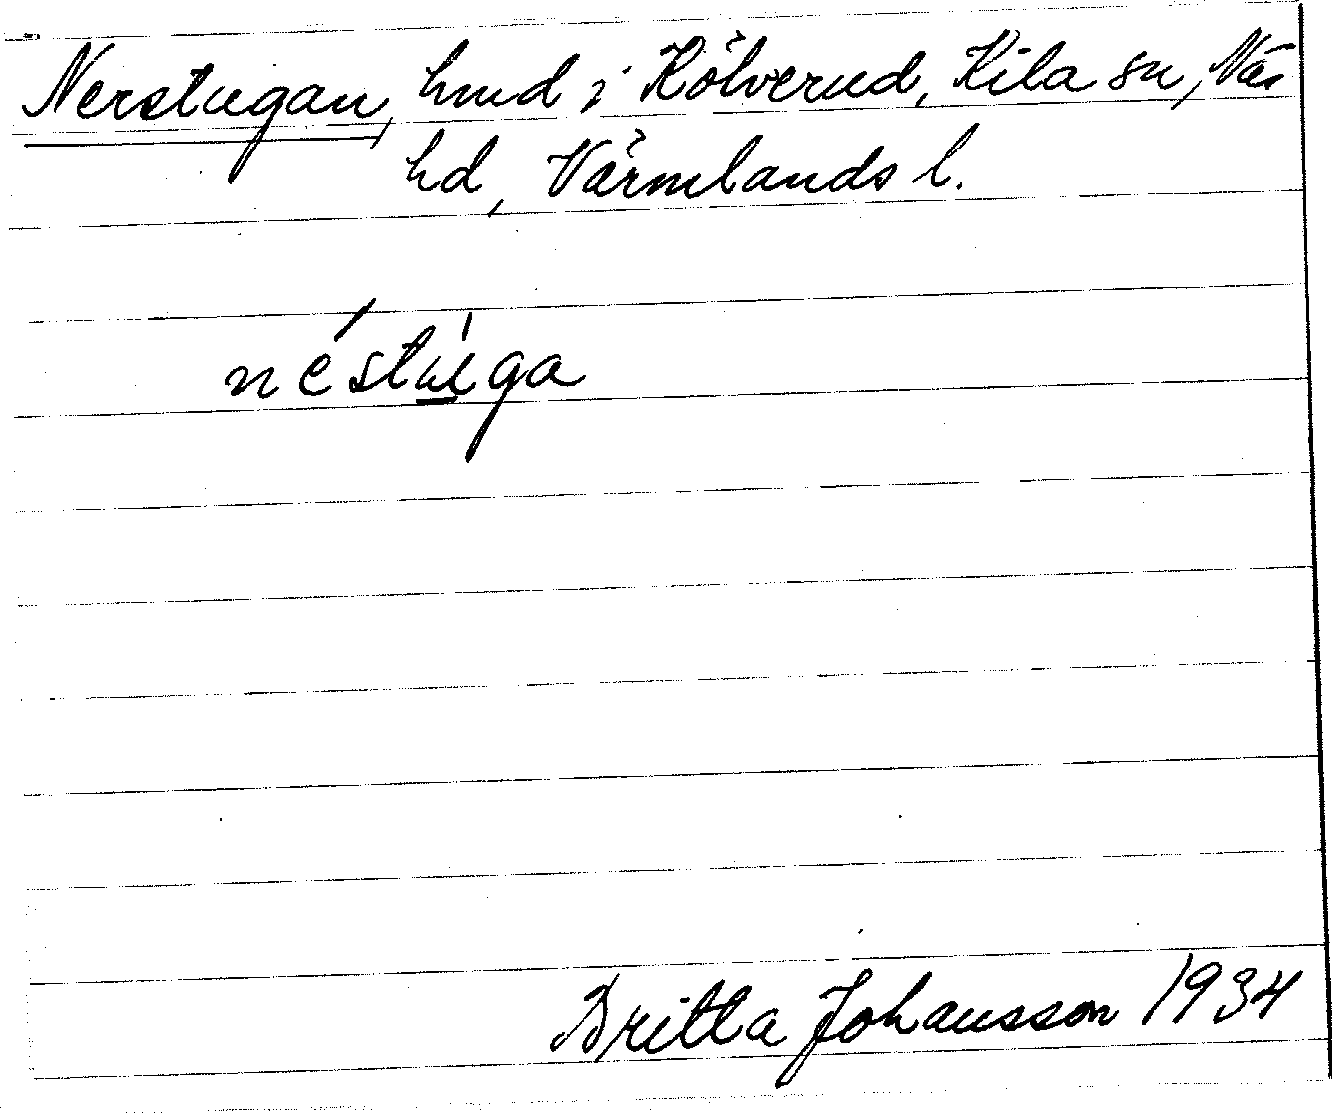 Nerstugan, hmd i Kölverud, Kila sn, Näs
hd, Värmlands l.
néstùga
Britta Johansson 1934